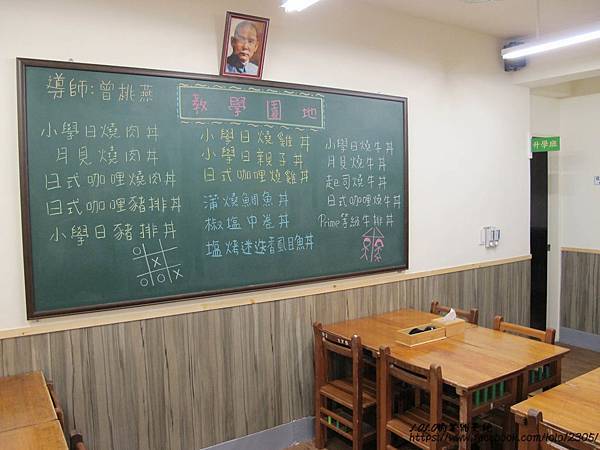 導師:曾桃燕
教學園地
小學日燒肉丼
月見燒肉丼
日式咖哩燒肉丼
日式咖哩豬排丼
小學日豬排丼
小學日燒雞丼
小學日親子丼
日式咖哩燒雞丼
蒲燒鯛魚丼
椒塩中卷丼
塩烤迷迭香虱目魚丼
小學日燒牛丼
月見燒牛丼
起司燒牛丼
日式咖哩燒牛丼
Prime等級牛排丼
升學班
https://www.facebook.com/lolo2305/